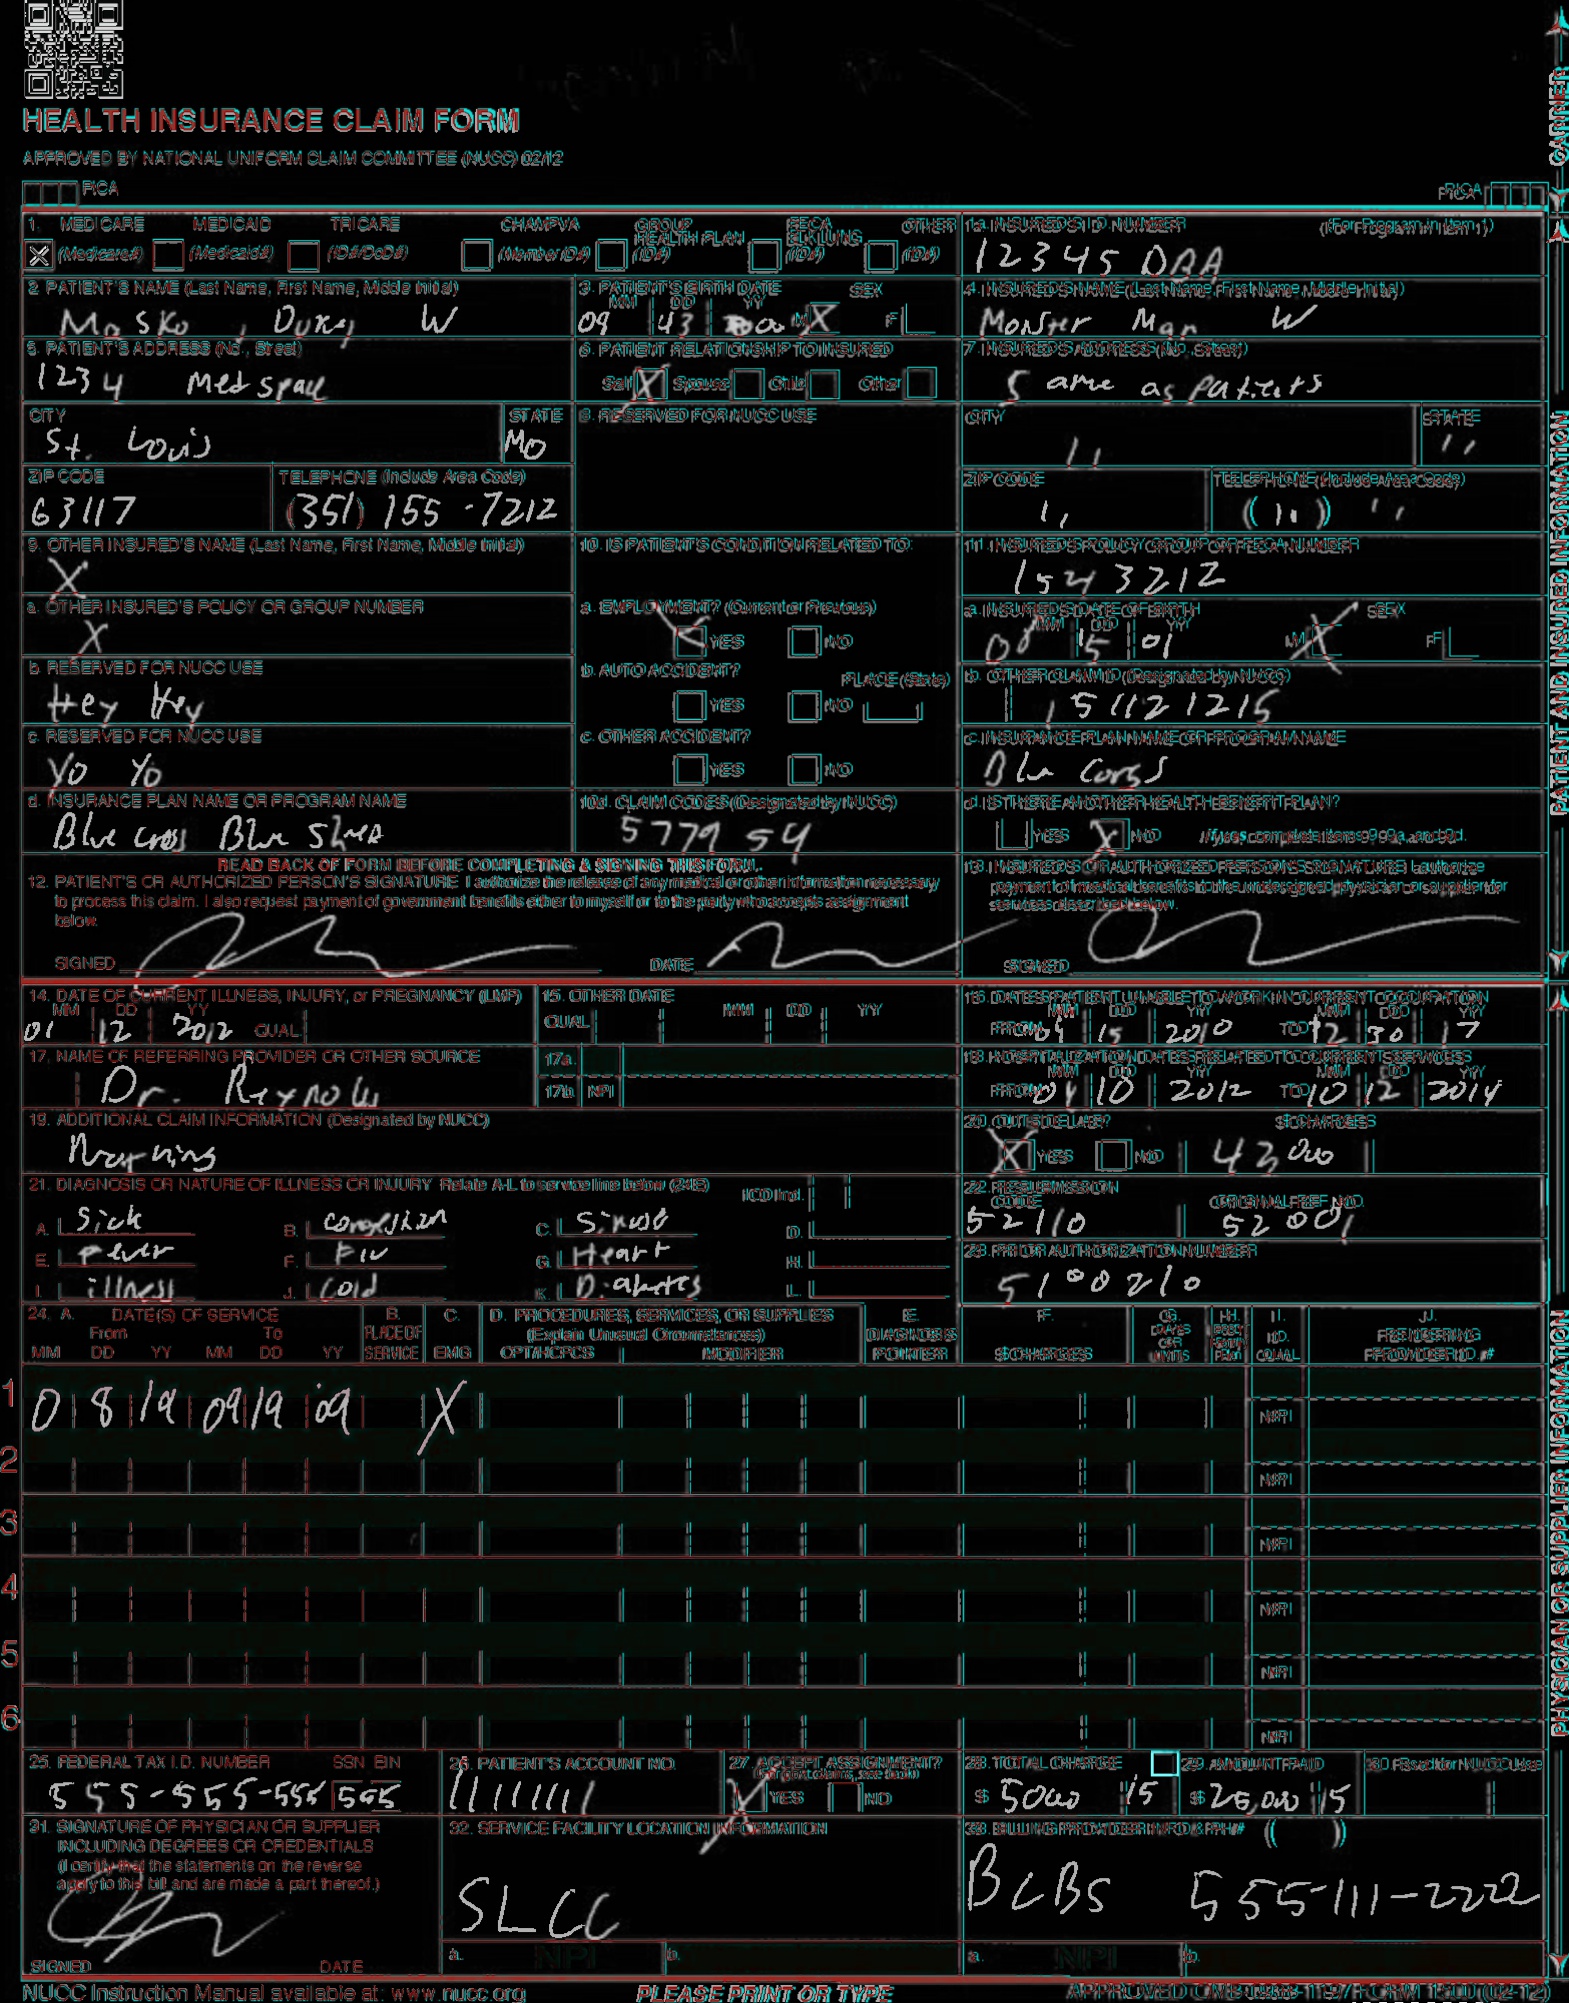 HEALTH INSURANCE CLAIM FORM
APPROVED BY NATIONAL UNIFORM CLAIM COMMITTEE (NUCC) 02/12
PICA
PICA
CARRIER
1. MEDICARE MEDICAID TRICARE CHAMPVA GROUP HEALTH PLAN FECA BLK LUNG OTHER
X (Medicare#) (Medicaid#) (ID#/DoD#) (Member ID#) (ID#) (ID#) (ID#)
1a. INSURED'S I.D. NUMBER (For Program in Item 1)
12345 DAA
2. PATIENT'S NAME (Last Name, First Name, Middle Initial)
W
3. PATIENT'S BIRTH DATE SEX
MM DD YY
09 43 M X F
4. INSURED'S NAME (Last Name, First Name, Middle Initial)
Monster Man W
5. PATIENT'S ADDRESS (No., Street)
1234
6. PATIENT RELATIONSHIP TO INSURED
Self X Spouse Child Other
7. INSURED'S ADDRESS (No., Street)
Same as patients
CITY
St. Louis
STATE
MO
8. RESERVED FOR NUCC USE
CITY
''
STATE
''
ZIP CODE
63117
TELEPHONE (Include Area Code)
(351) 155-7212
ZIP CODE
''
TELEPHONE (Include Area Code)
('') ''
9. OTHER INSURED'S NAME (Last Name, First Name, Middle Initial)
X
10. IS PATIENT'S CONDITION RELATED TO:
11. INSURED'S POLICY GROUP OR FECA NUMBER
1543212
a. OTHER INSURED'S POLICY OR GROUP NUMBER
X
a. EMPLOYMENT? (Current or Previous)
X YES NO
a. INSURED'S DATE OF BIRTH SEX
MM DD YY
15 01 M X F
b. RESERVED FOR NUCC USE
Hey Hey
b. AUTO ACCIDENT? PLACE (State)
YES NO
b. OTHER CLAIM ID (Designated by NUCC)
151121215
c. RESERVED FOR NUCC USE
Yo Yo
c. OTHER ACCIDENT?
YES NO
c. INSURANCE PLAN NAME OR PROGRAM NAME
d. INSURANCE PLAN NAME OR PROGRAM NAME
Blue Cross Blue
10d. CLAIM CODES (Designated by NUCC)
577954
d. IS THERE ANOTHER HEALTH BENEFIT PLAN?
YES X NO If yes, complete items 9, 9a, and 9d.
READ BACK OF FORM BEFORE COMPLETING & SIGNING THIS FORM.
12. PATIENT'S OR AUTHORIZED PERSON'S SIGNATURE I authorize the release of any medical or other information necessary
to process this claim. I also request payment of government benefits either to myself or to the party who accepts assignment
below.
SIGNED DATE
13. INSURED'S OR AUTHORIZED PERSON'S SIGNATURE I authorize
payment of medical benefits to the undersigned physician or supplier for
services described below.
SIGNED
PATIENT AND INSURED INFORMATION
14. DATE OF CURRENT ILLNESS, INJURY, or PREGNANCY (LMP)
MM DD YY
01 12 2012 QUAL.
15. OTHER DATE
QUAL. MM DD YY
16. DATES PATIENT UNABLE TO WORK IN CURRENT OCCUPATION
MM DD YY MM DD YY
FROM 15 2010 TO 12 30 17
17. NAME OF REFERRING PROVIDER OR OTHER SOURCE
Dr. Reynolds
17a.
17b. NPI
18. HOSPITALIZATION DATES RELATED TO CURRENT SERVICES
MM DD YY MM DD YY
FROM 10 2012 TO 10 12 2014
19. ADDITIONAL CLAIM INFORMATION (Designated by NUCC)
20. OUTSIDE LAB? $ CHARGES
X YES NO
21. DIAGNOSIS OR NATURE OF ILLNESS OR INJURY Relate A-L to service line below (24E) ICD Ind.
A. Sick B. congestion C. D.
E. Fever F. Flu G. Heart H.
I. illness J. Cold K. Diabetes L.
22. RESUBMISSION CODE ORIGINAL REF. NO.
52110 52001
23. PRIOR AUTHORIZATION NUMBER
5100210
24. A. DATE(S) OF SERVICE B. C. D. PROCEDURES, SERVICES, OR SUPPLIES E. F. G. H. I. J.
From To PLACE OF (Explain Unusual Circumstances) DIAGNOSIS DAYS OR EPSDT Family ID. RENDERING
MM DD YY MM DD YY SERVICE EMG CPT/HCPCS MODIFIER POINTER $ CHARGES UNITS Plan QUAL. PROVIDER ID. #
1 0 8 19 09 19 09 X NPI
2 NPI
3 NPI
4 NPI
5 NPI
6 NPI
PHYSICIAN OR SUPPLIER INFORMATION
25. FEDERAL TAX I.D. NUMBER SSN EIN
555-555-555 555
26. PATIENT'S ACCOUNT NO.
11111111
27. ACCEPT ASSIGNMENT?
(For govt. claims, see back)
X YES NO
28. TOTAL CHARGE
$ 5000 15
29. AMOUNT PAID
$ 25,000 15
30. Rsvd for NUCC Use
31. SIGNATURE OF PHYSICIAN OR SUPPLIER
INCLUDING DEGREES OR CREDENTIALS
(I certify that the statements on the reverse
apply to this bill and are made a part thereof.)
SIGNED DATE
32. SERVICE FACILITY LOCATION INFORMATION
SLCC
a. NPI b.
33. BILLING PROVIDER INFO & PH # ( )
BCBS 555-111-2222
a. NPI b.
NUCC Instruction Manual available at: www.nucc.org
PLEASE PRINT OR TYPE
APPROVED OMB-0938-1197 FORM 1500 (02-12)